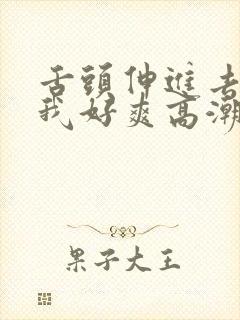 舌頭伸進去
我好爽高潮
果子大王